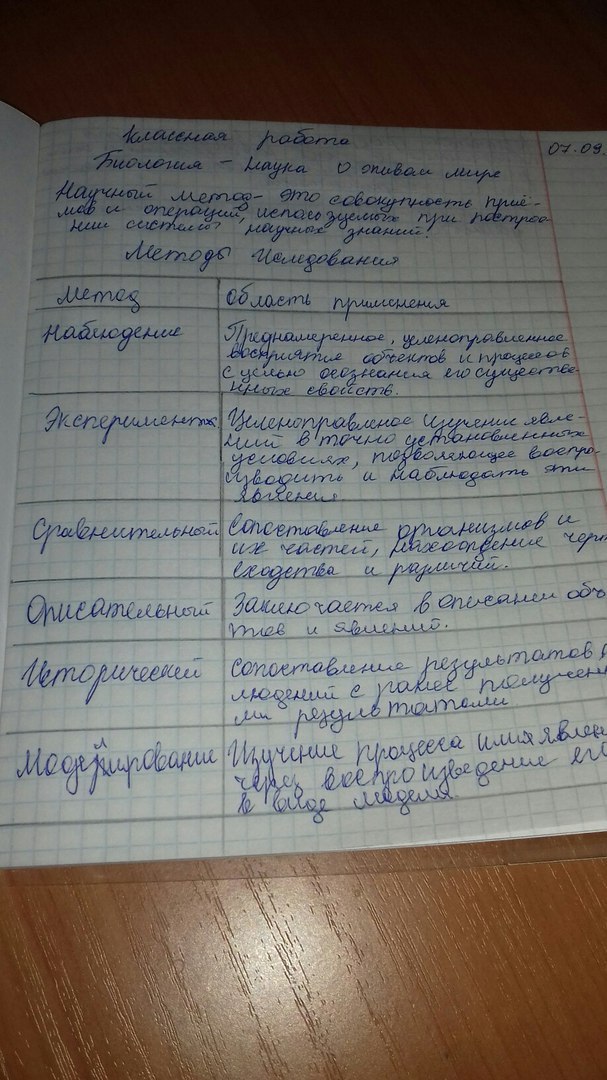 Классная работа
07.09.
Биология - наука о живом мире
Научный метод - это совокупность приё-
мов и операций, используемых при построе-
нии системы научных знаний.
Методы Иследования
Метод
Область применения
Наблюдение
Преднамеренное, целеноправленное
восприятие объектов и процессов
с целью осознания его существе-
нных свойств.
Эксперимент
Целеноправленое изучение явле-
ний в точно установленных
условиях, позволяющее воспро-
изводить и наблюдать эти
явления
Сравнительный
Сопоставление организмов и
их частей, нахождение черт
сходства и различий.
Описательный
Заключается в описании объ
тов и явлений.
Исторический
Сопоставление результатов
людений с ранее получен
ми результатами
Моделирование
Изучение процесса или явлен
через воспроизведение его
в виде модели.